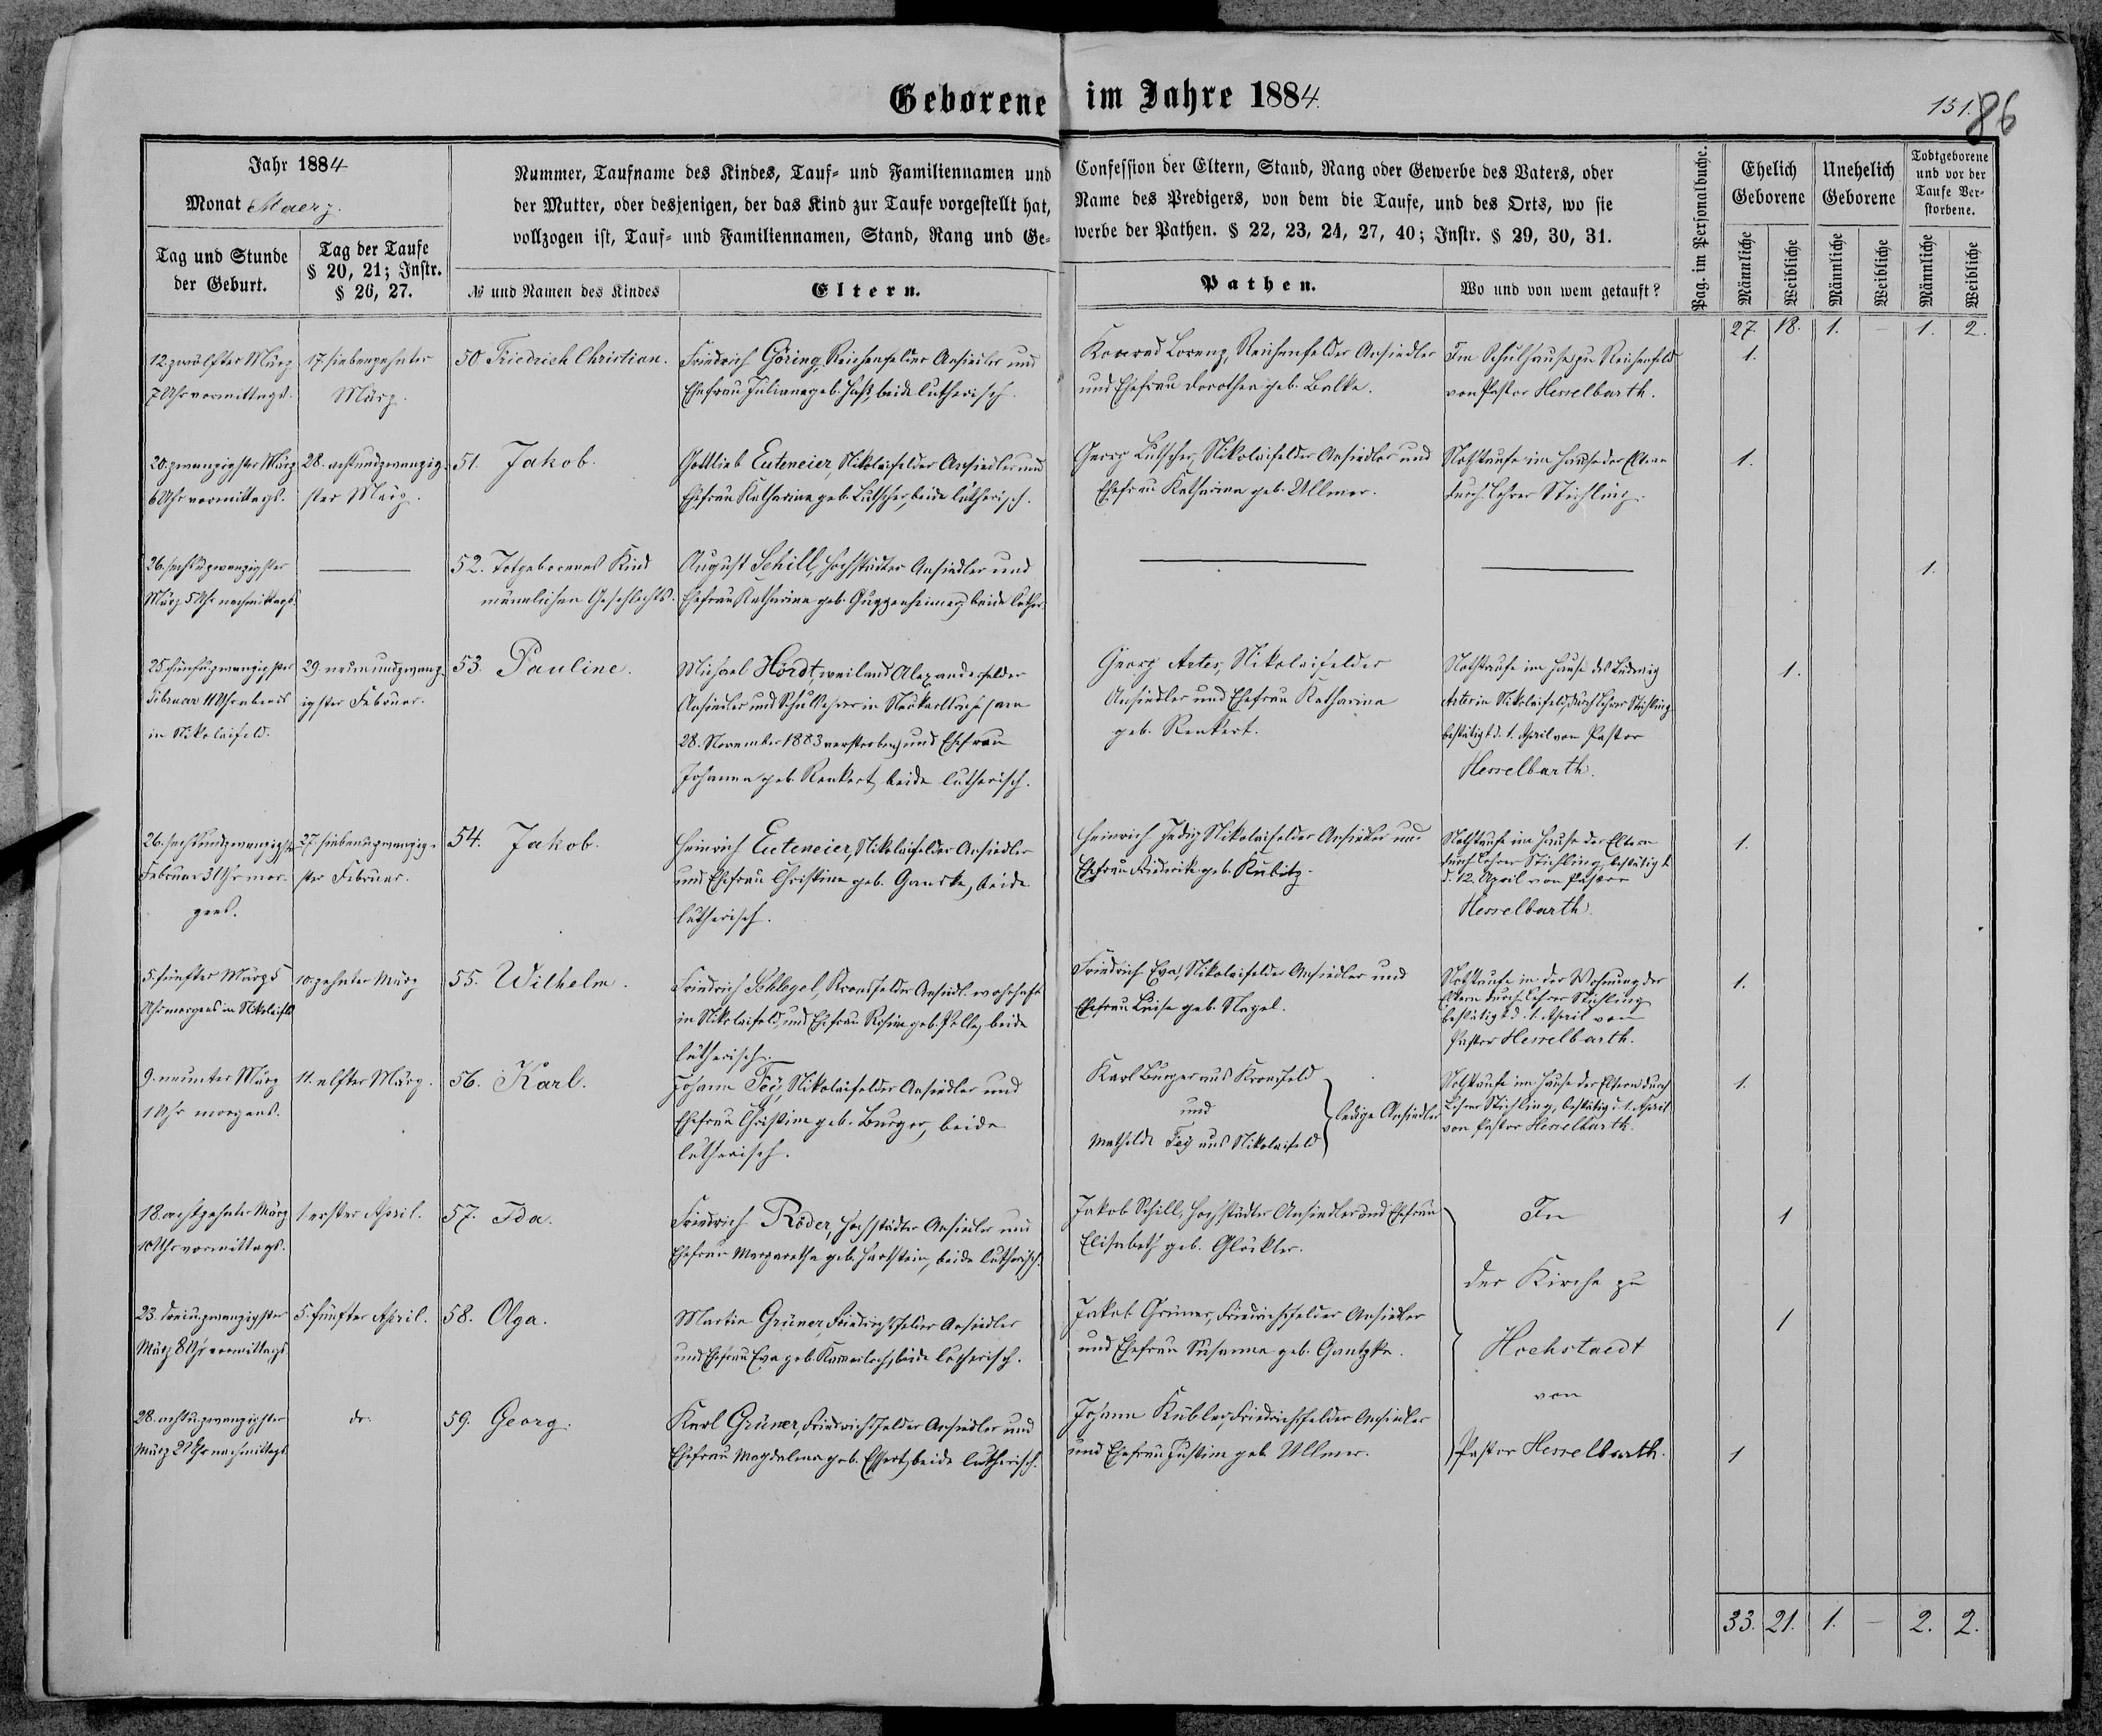 Geborene im Jahre 1884.
151.
86
Jahr 1884
Monat Maerz.
Tag und Stunde
der Geburt.
Tag der Taufe
§ 20, 21; Instr.
§ 26, 27.
Nummer, Taufname des Kindes, Tauf- und Familiennamen und
der Mutter, oder desjenigen, der das Kind zur Taufe vorgestellt hat,
vollzogen ist, Tauf- und Familiennamen, Stand, Rang und Ge-
№ und Namen des Kindes
Eltern.
Confession der Eltern, Stand, Rang oder Gewerbe des Vaters, oder
Name des Predigers, von dem die Taufe, und des Orts, wo sie
werbe der Pathen. § 22, 23, 24, 27, 40; Instr. § 29, 30, 31.
Pathen.
Wo und von wem getauft?
Pag. im Personalbuche.
Ehelich
Geborene
Unehelich
Geborene
Todtgeborene
und vor der
Taufe Ver-
storbene.
Männliche
Weibliche
Männliche
Weibliche
Männliche
Weibliche
27. 18. 1. — 1. 2.
12. zwölfter März
7 Uhr vormittags.
17. siebenzehnter
März.
50. Friedrich Christian.
Friedrich Göring, Reichenfelder Ansiedler und
Ehefrau Juliane geb. Hass, beide lutherisch.
Konrad Lorenz, Reichenfelder Ansiedler
und Ehefrau Dorothea geb. Balke.
Im Schulhause zu Reichenfeld
von Pastor Hesselbarth.
1.
20. zwanzigster März
6 Uhr vormittags.
28. achtundzwanzig-
ster März.
51. Jakob.
Gottlieb Euteneier, Nikolaifelder Ansiedler und
Ehefrau Katharina geb. Lutscher, beide lutherisch.
Georg Lutscher, Nikolaifelder Ansiedler und
Ehefrau Katharina geb. Ullmer.
Nothtaufe im Hause der Eltern
durch Lehrer Stichling.
1.
26. sechsuzwanzigster
März 5 Uhr nachmittags.
52. Totgeborenes Kind
männlichen Geschlechts.
August Schill, Hochstädter Ansiedler und
Ehefrau Katharina geb. Guggenheimer, beide luther.
1.
25. fünfuzwanzigster
Februar 11 Uhr abends
in Nikolaifeld.
29. neunundzwanz-
igster Februar.
53. Pauline.
Michael Hördt, weiland Alexanderfelder
Ansiedler und Schullehrer in Neukarlsruhe (am
28. November 1883 verstorben) und Ehefrau
Johanna geb. Renkert, beide lutherisch.
Georg Artes, Nikolaifelder
Ansiedler und Ehefrau Katharina
geb. Renkert.
Nothtaufe im Hause des Ludwig
Artes in Nikolaifeld, durch Lehrer Stichling
bestätigt d. 1. April von Pastor
Hesselbarth.
1.
26. sechsundzwanzigster
Februar 3 Uhr mor-
gens.
27. siebenuzwanzig-
ster Februar.
54. Jakob.
Heinrich Euteneier, Nikolaifelder Ansiedler
und Ehefrau Christine geb. Ganske, beide
lutherisch.
Heinrich Jedig Nikolaifelder Ansiedler und
Ehefrau Friederike geb. Kubitz.
Nothtaufe im Hause der Eltern
durch Lehrer Stichling, bestätigt
d. 12. April von Pastor
Hesselbarth.
1.
5. fünfter März 5
Uhr morgens in Nikolaifld
10. zehnter März
55. Wilhelm.
Friedrich Schlegel, Kronsfelder Ansiedl. wohnhaft
in Nikolaifeld, und Ehefrau Rosine geb. Polle, beide
lutherisch.
Friedrich Eva, Nikolaifelder Ansiedler und
Ehefrau Luise geb. Nagel.
Nothtaufe in der Wohnung der
Eltern durch Lehrer Stichling
bestätigt d. 1. April von
Pastor Hesselbarth.
1.
9. neunter März
1 Uhr morgens.
11. elfter März.
56. Karl.
Johann Fey, Nikolaifelder Ansiedler und
Ehefrau Christine geb. Burger, beide
lutherisch.
Karl Burger aus Kronsfeld
und
Mathilde Fey aus Nikolaifeld
ledige Ansiedler
Nothtaufe im Hause der Eltern durch
Lehrer Stichling, bestätigt d. 1. April
von Pastor Hesselbarth.
1.
18. achtzehnter März
10 Uhr vormittags.
1. erster April.
57. Ida.
Friedrich Röder, Hochstädter Ansiedler und
Ehefrau Margaretha geb. Hartstein, beide lutherisch.
Jakob Schill, Hochstädter Ansiedler und Ehefrau
Elisabeth geb. Glöckler.
In
der Kirche zu
Hochstaedt
von
Pastor Hesselbarth.
1
23. dreiuzwanzigster
März 8 Uhr vormittags
5. fünfter April.
58. Olga.
Martin Grüner, Friedrichsfelder Ansiedler
und Ehefrau Eva geb. Kammerloch, beide lutherisch.
Jakob Grüner, Friedrichsfelder Ansiedler
und Ehefrau Susanna geb. Gantzke.
1
28. achtuzwanzigster
März 2 Uhr nachmittags
do.
59. Georg.
Karl Grüner, Friedrichsfelder Ansiedler und
Ehefrau Magdalena geb. Essert, beide lutherisch.
Johann Kübler, Friedrichsfelder Ansiedler
und Ehefrau Justine geb. Ullmer.
1
33. 21. 1. — 2. 2.